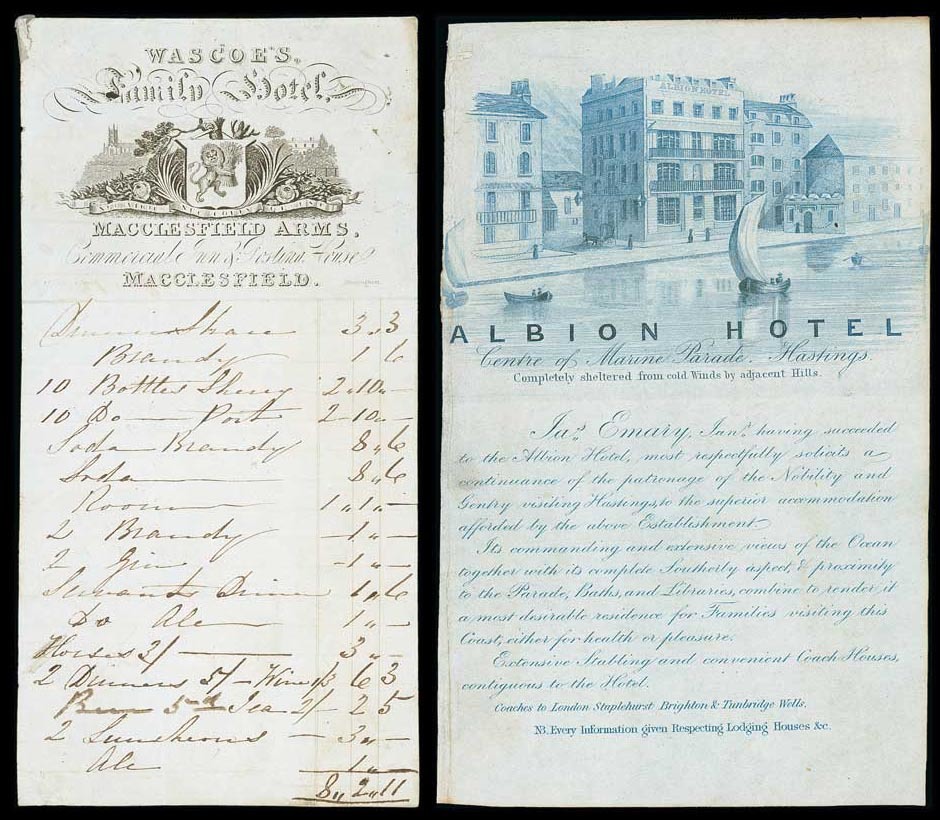 WASCOE'S,
Family Hotel,
MACCLESFIELD ARMS,
Commercial Inn & Posting House
MACCLESFIELD.
3 „ 3
Brandy 1 6
10 Bottles Sherry 2 „ 10 „ —
10 Do — Port 2 - 10 „ —
Soda Brandy 8 „ 6
Soda 8 „ 6
Rooms 1 „ 1 „ —
2 Brandy — 1 „ —
2 Gin — 1 „ —
Servants Dinner 1 „ 6
Do Ale 1 „ —
Horses 2/ — 3 „ —
2 Dinners 5/ — Wine 1/3 6 3
Beer 5d Tea 2/- 2 5
2 Luncheons — 3 „ —
Ale 1 „ —
8 „ 2 „ 11
ALBION HOTEL
ALBION HOTEL
Centre of Marine Parade, Hastings.
Completely sheltered from cold Winds by adjacent Hills.
Jas. Emary, Junr. having succeeded
to the Albion Hotel, most respectfully solicits a
continuance of the patronage of the Nobility and
Gentry visiting Hastings, to the superior accommodation
afforded by the above Establishment—
Its commanding and extensive views of the Ocean
together with its complete Southerly aspect, & proximity
to the Parade, Baths, and Libraries, combine to render it
a most desirable residence for Families visiting this
Coast, either for health or pleasure.
Extensive Stabling and convenient Coach Houses,
contiguous to the Hotel.
Coaches to London Staplehurst Brighton & Tunbridge Wells.
NB. Every Information given Respecting Lodging Houses &c.